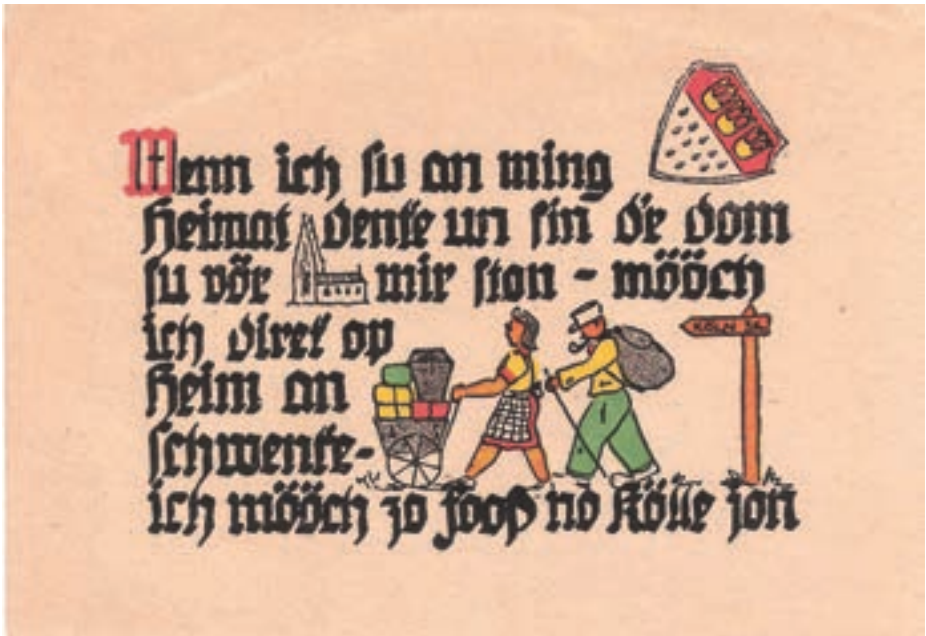 Wenn ich su an ming
Heimat denke un sin d'r Dom
su vör mir ston - mööch
ich direk op
Heim an
schwenke-
ich mööch zo Fooß no Kölle jon
KÖLN